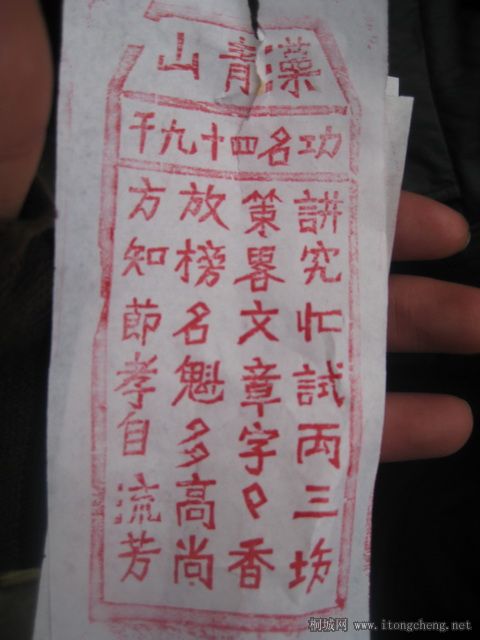 青山
功名四十九千
講究忙試两三场
策畧文章字々香
放榜名魁多高尚
方知節孝自流芳
桐城网 www.itongcheng.net